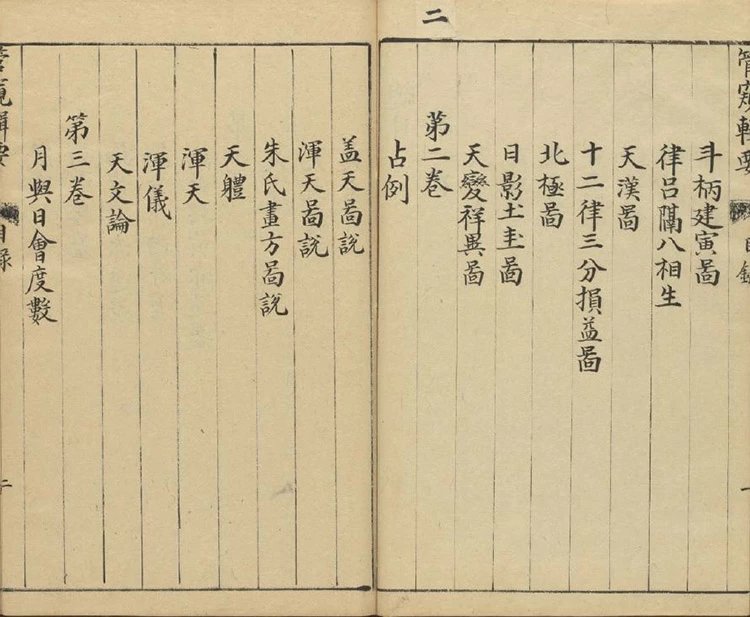 二
管窺輯要
目錄
一
斗柄建寅啚
律吕隔八相生
天漢啚
十二律三分損益啚
北極啚
日影土圭啚
天變祥異啚
第二卷
占例
盖天啚說
渾天啚說
朱氏畫方啚說
天體
渾天
渾儀
天文論
第三卷
月與日會度數
目錄
二